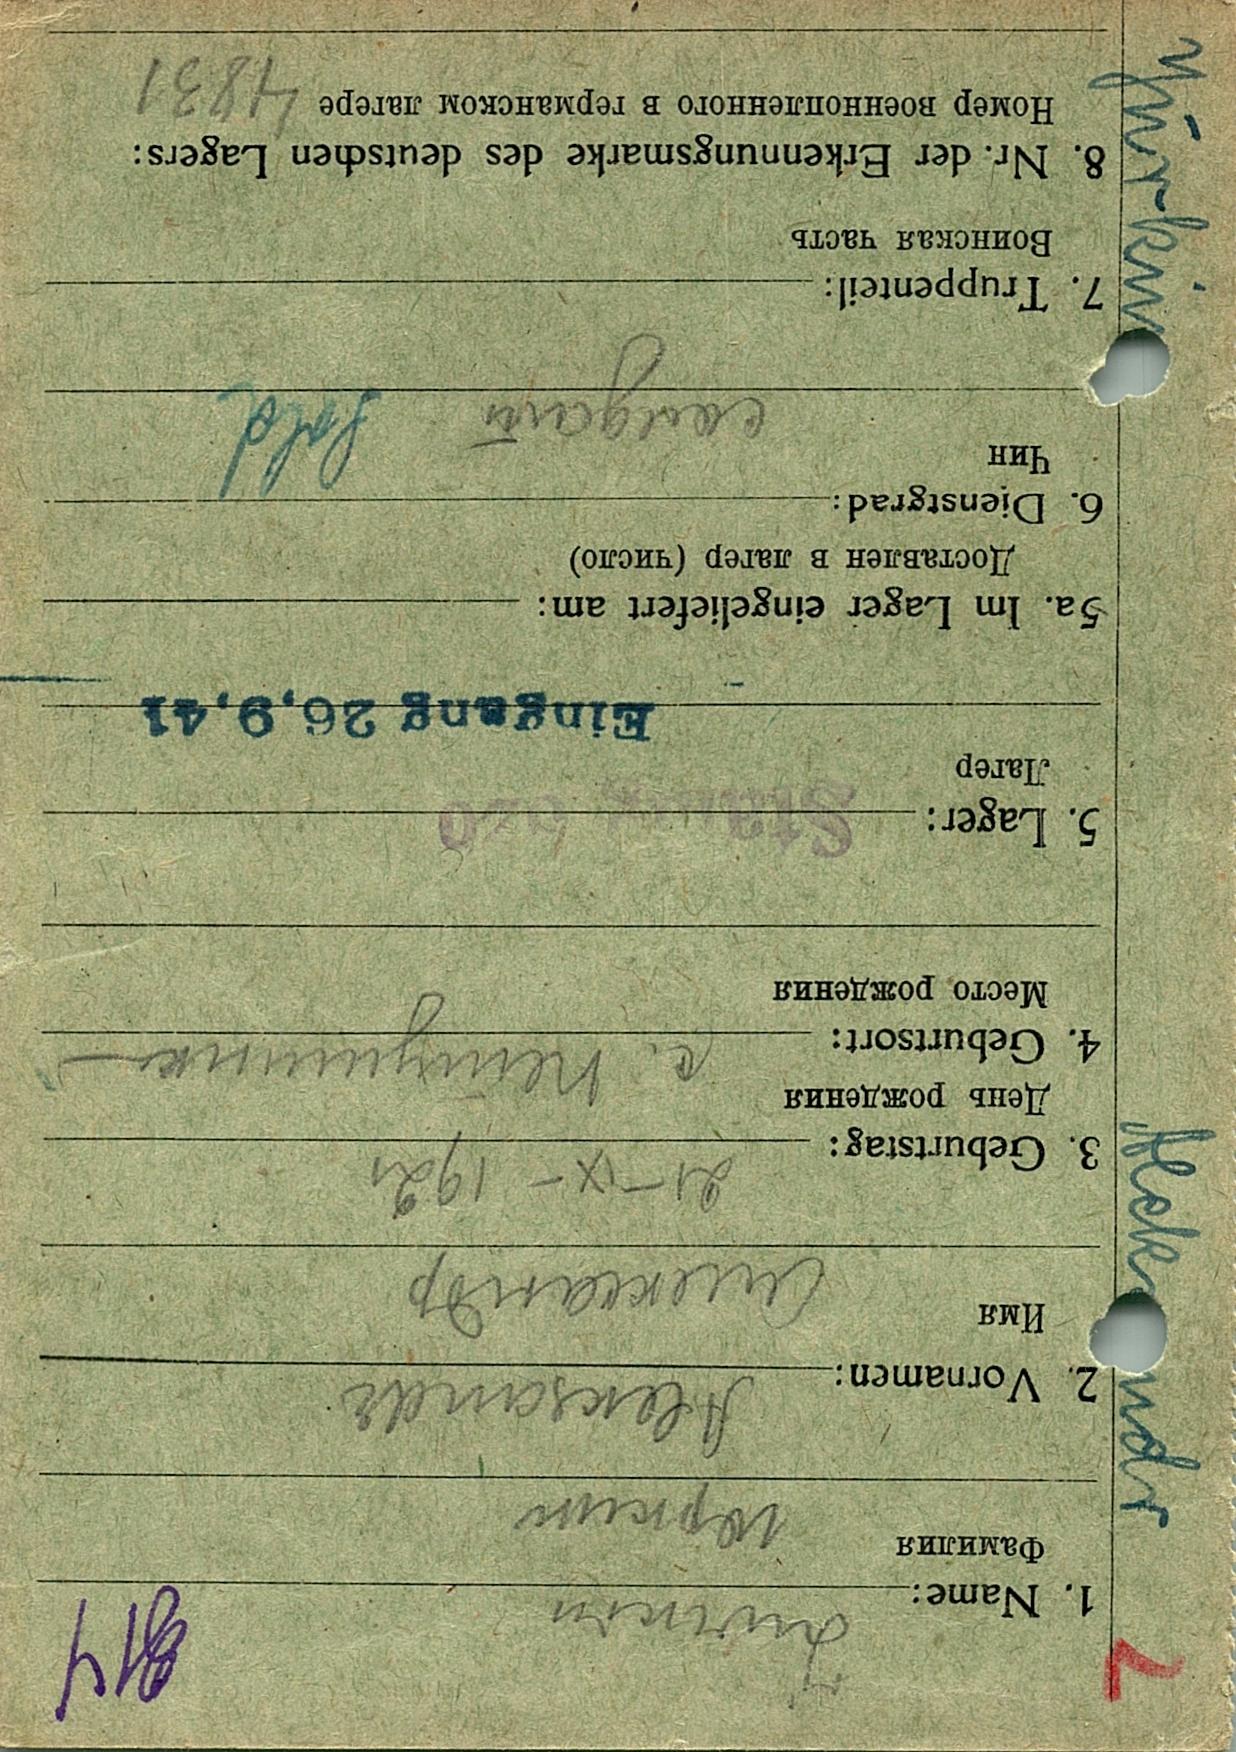 814
1. Name:
Фамилия
Юркин
2. Vornamen: Aleksandr
Имя
Александр
3. Geburtstag: 21-IX-1921
День рождения
4. Geburtsort: с.
Место рождения
5. Lager: Stalag
Лагер
Eingang 26.9.41
5a. Im Lager eingeliefert am:
Доставлен в лагер (число)
6. Dienstgrad:
Чин
солдат Sold
7. Truppenteil:
Воинская часть
8. Nr. der Erkennungsmarke des deutschen Lagers:
Номер военнопленного в германском лагере 4831
Jürkin